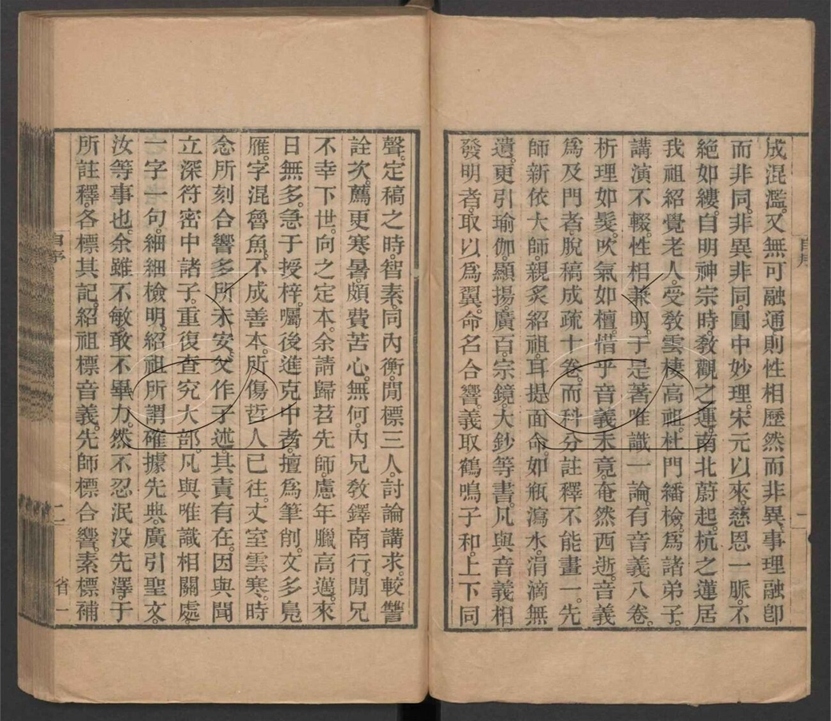 成混濫又無可融通則性相歷然而非異事理融卽
而非同非異非同圓中妙理宋元以來慈恩一脈不
絶如縷自明神宗時敎觀之運南北蔚起杭之蓮居
我祖紹覺老人受敎雲棲高祖杜門繙檢爲諸弟子
講演不輟性相兼明于是著唯識一論有音義八卷
析理如髮吹氣如檀惜乎音義未竟奄然西逝音義
爲及門者脫稿成疏十卷而科分註釋不能畫一先
師新依大師親炙紹祖耳提面命如瓶瀉水涓滴無
遺更引瑜伽顯揚廣百宗鏡大鈔等書凡與音義相
發明者取以爲翼命名合響義取鶴鳴子和上下同
自序
二
聲定稿之時智素同內衡聞標三人討論講求較讐
詮次薦更寒暑頗費苦心無何內兄敎鐸南行聞兄
不幸下世向之定本余請歸苕先師慮年臘高邁來
日無多急于授梓囑後進克中者擅爲筆創文多鳧
雁字混魯魚不成善本所傷哲人已往丈室雲寒時
念所刻合響多所未安父作子述其責有在因與聞
立深符密中諸子重復查究大部凡與唯識相關處
一字一句細細檢明紹祖所謂確據先典廣引聖文
汝等事也余雖不敏敢不畢力然不忍泯没先澤于
所註釋各標其記紹祖標音義先師標合響素標補
自序
二
省一